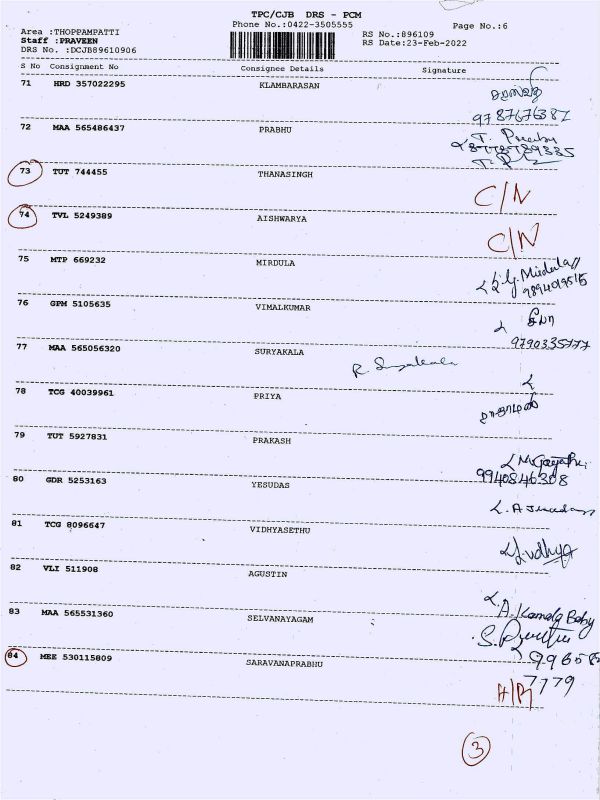 TPC/CJB DRS - PCM
Phone No.:0422-3505555
Page No.:6
Area :THOPPAMPATTI
Staff :PRAVEEN
DRS No. :DCJB89610906
RS No.:896109
RS Date:23-Feb-2022
S No Consignment No Consignee Details Signature
71 HRD 357022295 KLAMBARASAN
72 MAA 565486437 PRABHU
73 TUT 744455 THANASINGH C/N
74 TVL 5249389 AISHWARYA C/N
75 MTP 669232 MIRDULA
76 GPM 5105635 VIMALKUMAR
9790335777
77 MAA 565056320 SURYAKALA R. Suryakala
78 TCG 40039961 PRIYA
79 TUT 5927831 PRAKASH
9940846308
80 GDR 5253163 YESUDAS
81 TCG 8096647 VIDHYASETHU
82 VLI 511908 AGUSTIN
A. Kamala Baby
83 MAA 565531360 SELVANAYAGAM
84 MEE 530115809 SARAVANAPRABHU
7779
3